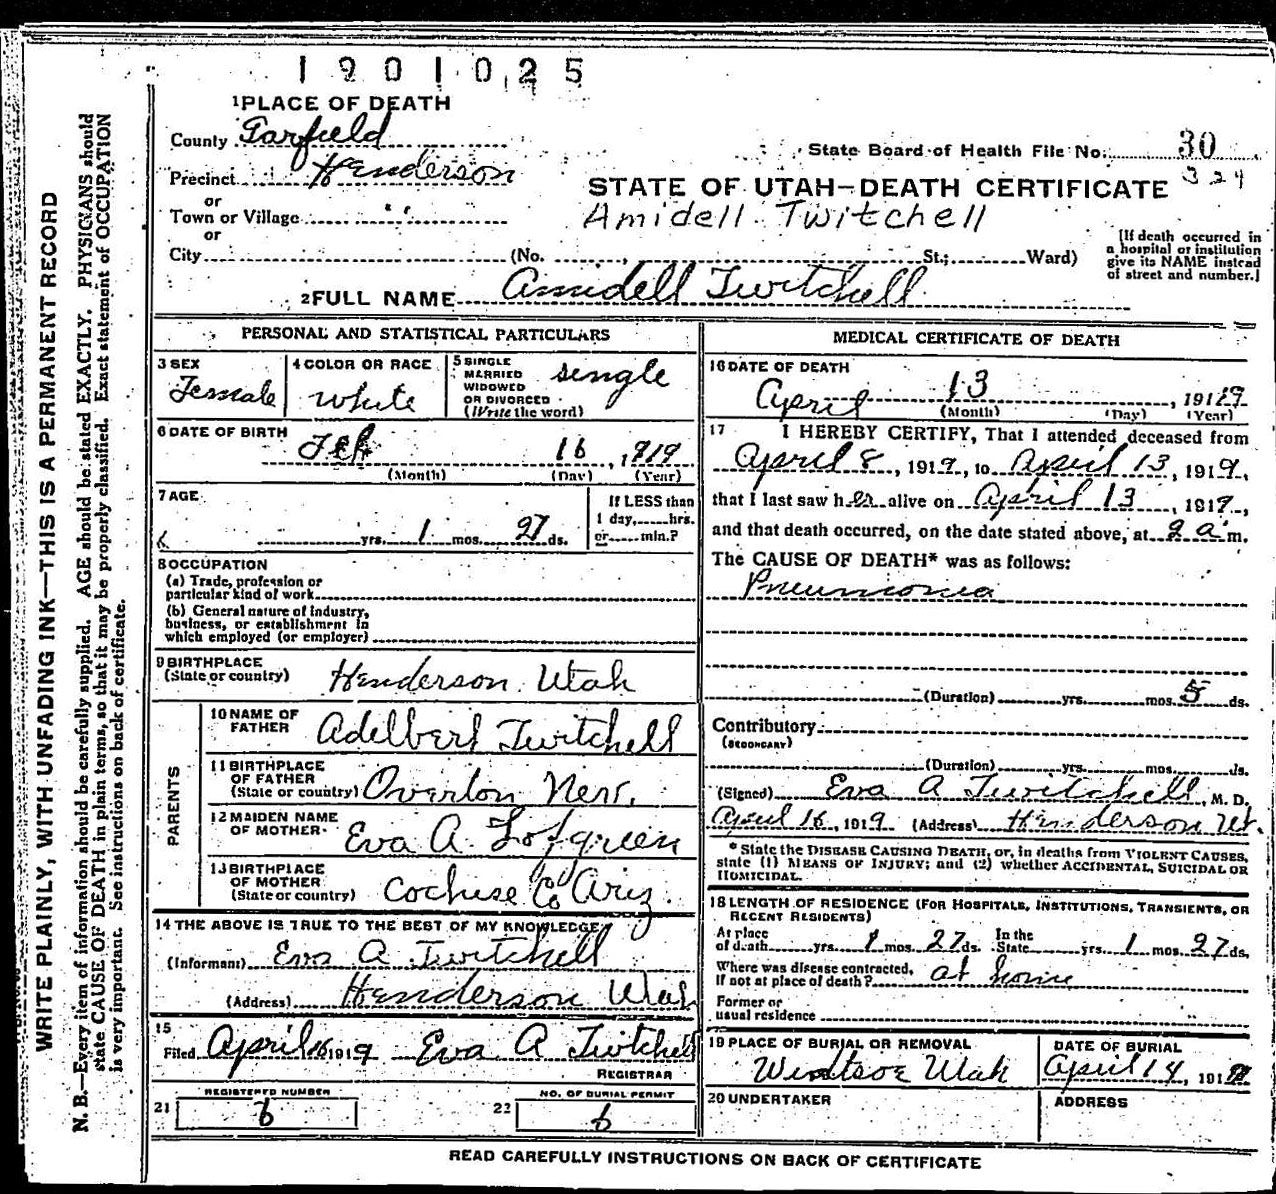 1901025
1 PLACE OF DEATH
County Garfield
State Board of Health File No. 30
324
Precinct Henderson
or
Town or Village " "
or
City (No. , St.; Ward)
STATE OF UTAH—DEATH CERTIFICATE
Amidell Twitchell
[If death occurred in
a hospital or institution
give its NAME instead
of street and number.]
2 FULL NAME Amidell Twitchell
PERSONAL AND STATISTICAL PARTICULARS
3 SEX
Female
4 COLOR OR RACE
white
5 SINGLE
MARRIED
WIDOWED
OR DIVORCED
(Write the word)
single
6 DATE OF BIRTH
Feb 16, 1919
(Month) (Day) (Year)
7 AGE
yrs. 1 mos. 27 ds.
If LESS than
1 day, hrs.
or min.?
8 OCCUPATION
(a) Trade, profession or
particular kind of work
(b) General nature of industry,
business, or establishment in
which employed (or employer)
9 BIRTHPLACE
(State or country) Henderson Utah
PARENTS
10 NAME OF
FATHER Adelbert Twitchell
11 BIRTHPLACE
OF FATHER
(State or country) Overton Nev.
12 MAIDEN NAME
OF MOTHER Eva A. Lofgreen
13 BIRTHPLACE
OF MOTHER
(State or country) Cochise Co Ariz.
14 THE ABOVE IS TRUE TO THE BEST OF MY KNOWLEDGE
(Informant) Eva A Twitchell
(Address) Henderson Utah
15
Filed April 16 1919 Eva A Twitchell
REGISTRAR
REGISTERED NUMBER
21 6
NO. OF BURIAL PERMIT
22 6
MEDICAL CERTIFICATE OF DEATH
16 DATE OF DEATH
April 13, 1919
(Month) (Day) (Year)
17 I HEREBY CERTIFY, That I attended deceased from
April 8, 1919, to April 13, 1919,
that I last saw her alive on April 13, 1919,
and that death occurred, on the date stated above, at 2 a m.
The CAUSE OF DEATH* was as follows:
Pneumonia
(Duration) yrs. mos. 5 ds.
Contributory
(SECONDARY)
(Duration) yrs. mos. ds.
(Signed) Eva A Twitchell, M. D.
April 16, 1919 (Address) Henderson Ut.
* State the DISEASE CAUSING DEATH, or, in deaths from VIOLENT CAUSES,
state (1) MEANS OF INJURY; and (2) whether ACCIDENTAL, SUICIDAL OR
HOMICIDAL.
18 LENGTH OF RESIDENCE (FOR HOSPITALS, INSTITUTIONS, TRANSIENTS, OR
RECENT RESIDENTS)
At place
of death yrs. 1 mos. 27 ds. In the
State yrs. 1 mos. 27 ds.
Where was disease contracted,
If not at place of death? at home
Former or
usual residence
19 PLACE OF BURIAL OR REMOVAL
Windsor Utah
DATE OF BURIAL
April 14, 191
20 UNDERTAKER
ADDRESS
READ CAREFULLY INSTRUCTIONS ON BACK OF CERTIFICATE
WRITE PLAINLY, WITH UNFADING INK—THIS IS A PERMANENT RECORD
N. B.—Every item of information should be carefully supplied. AGE should be stated EXACTLY. PHYSICIANS should
state CAUSE OF DEATH in plain terms, so that it may be properly classified. Exact statement of OCCUPATION
is very important. See instructions on back of certificate.